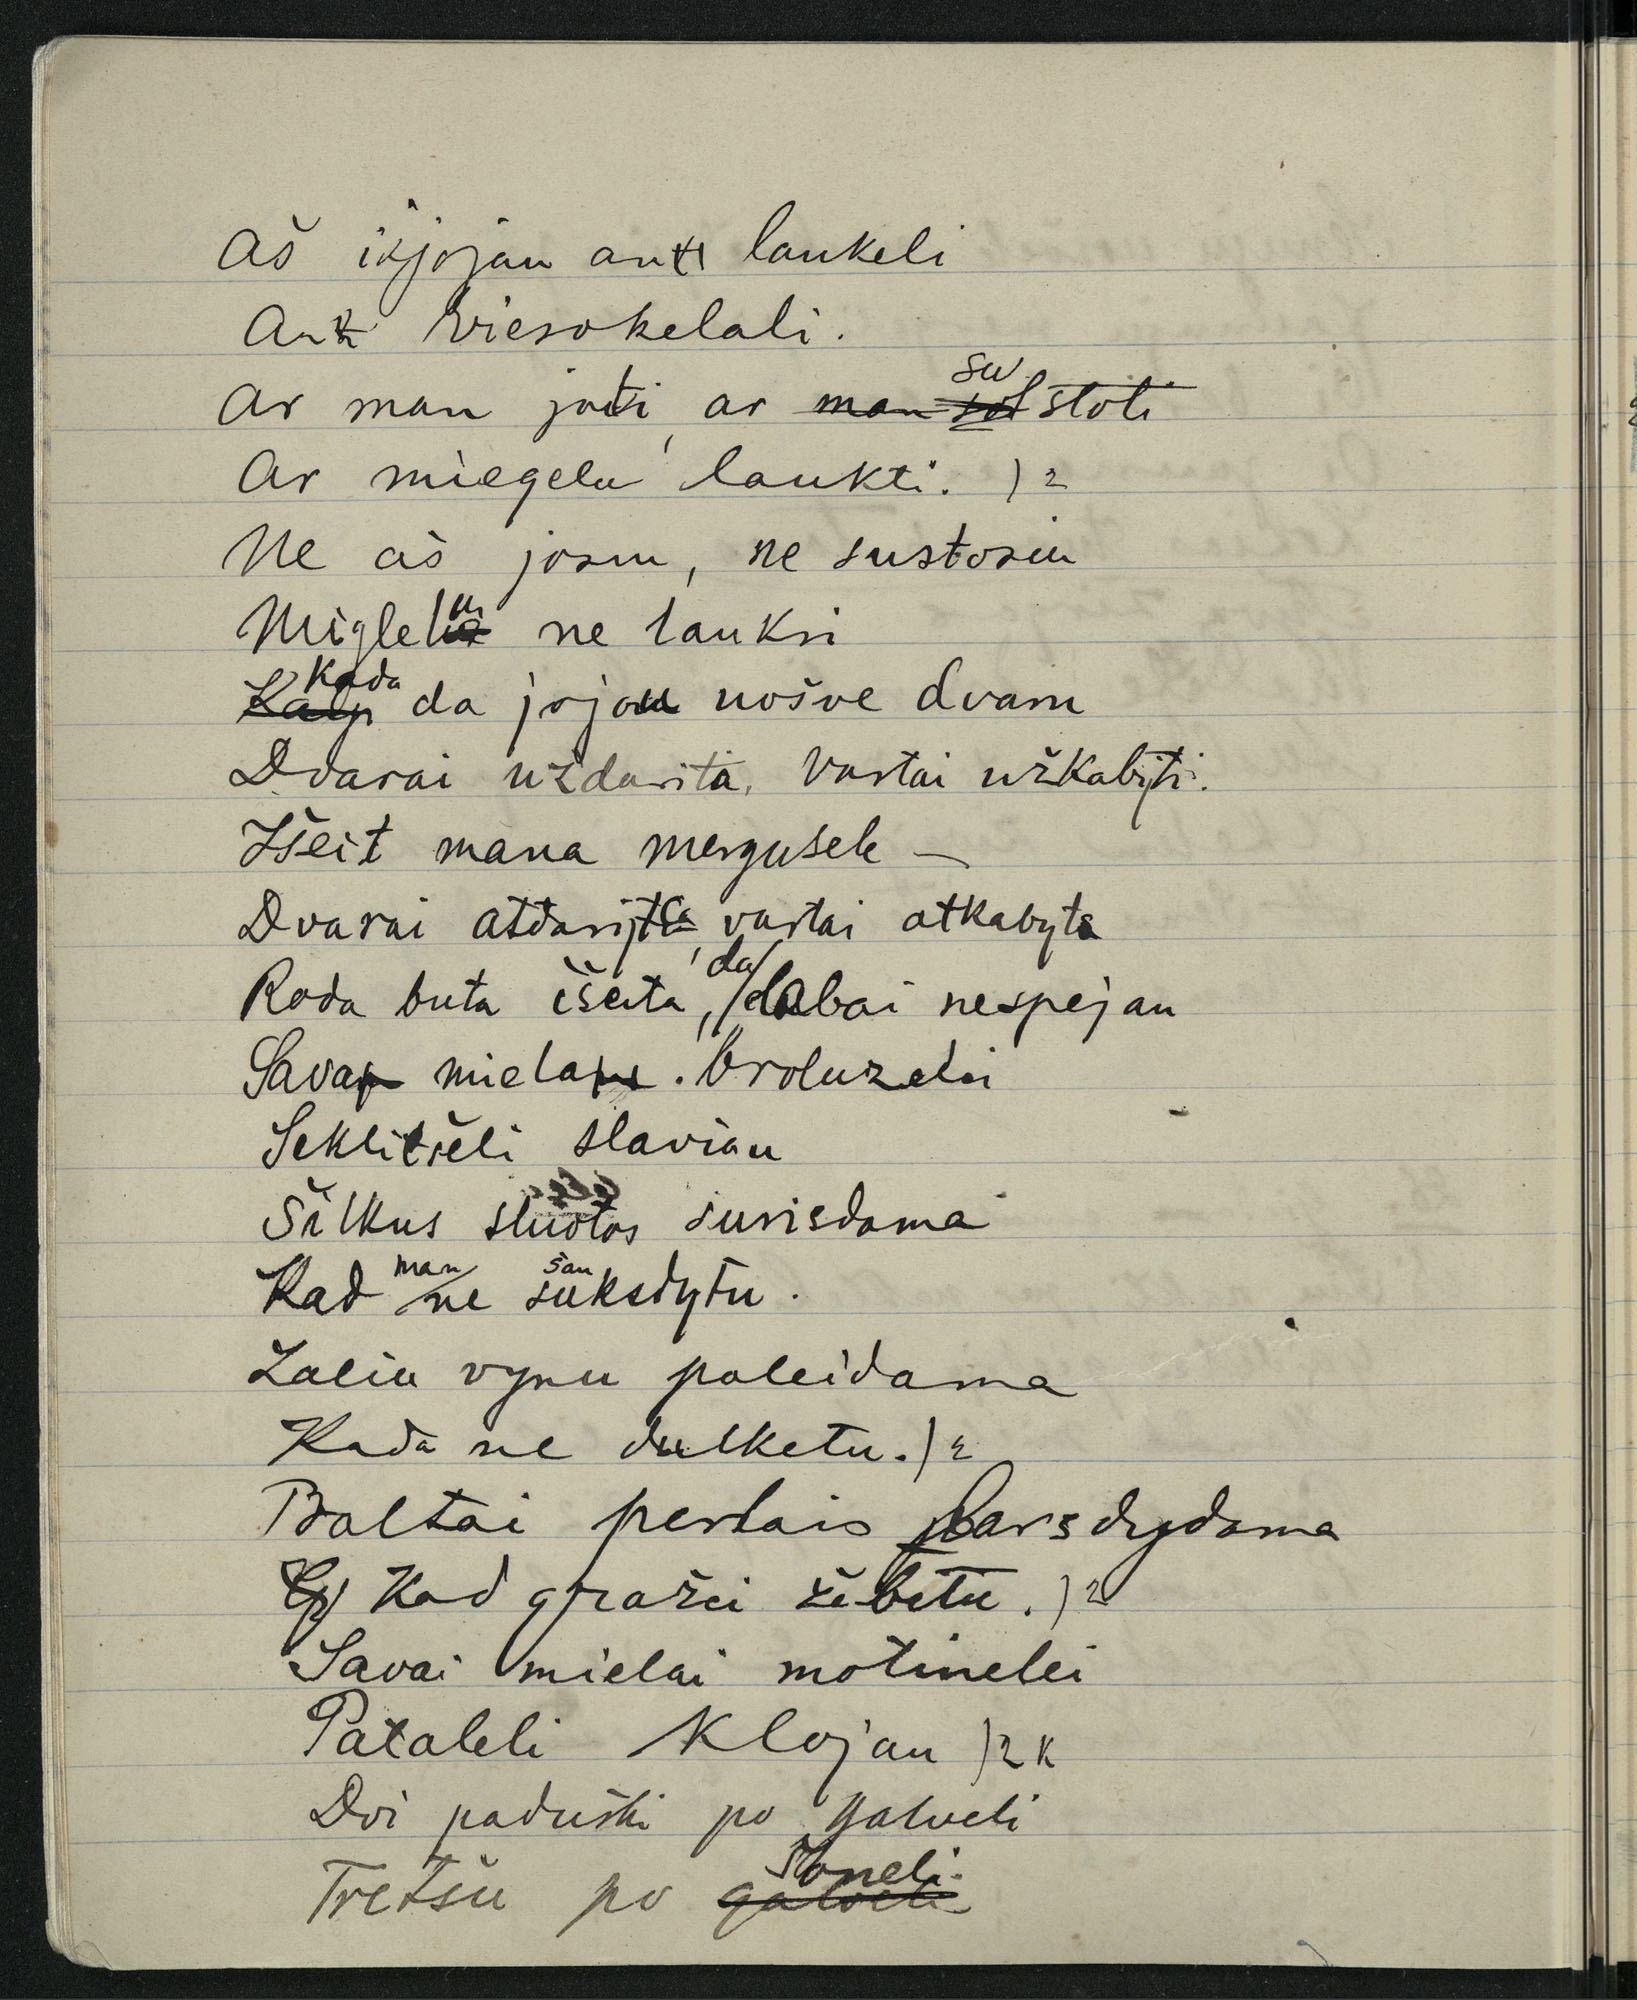 Aš išjojau ant laukeli
Ant viesokelali.
Ar man joti, ar man su stoti
Ar miegelu laukti. )2
Ne aš josu, ne sustosiu
Migleliu ne lauksi
Kada da jojau uošve dvaru
Dvarai uždarita, vartai užkabyti.
Išeit mana mergusele —
Dvarai atdaryta, vartai atkabyta
Roda buta išeita, da labai nespejau
Sava miela broluzelei
Seklitšeli slaviau
Šilkus sluotas surisdama
Kad man ne šauksdytu.
Zaliu vynu paleidama
Kada ne dulketu. )2
Baltai perlais barsdydama
Kad gražei žibetu. )2
Savai mielai motinelei
Pataleli klojau )2 k
Dvi paduški po galveli
Tretšu po šoneli.